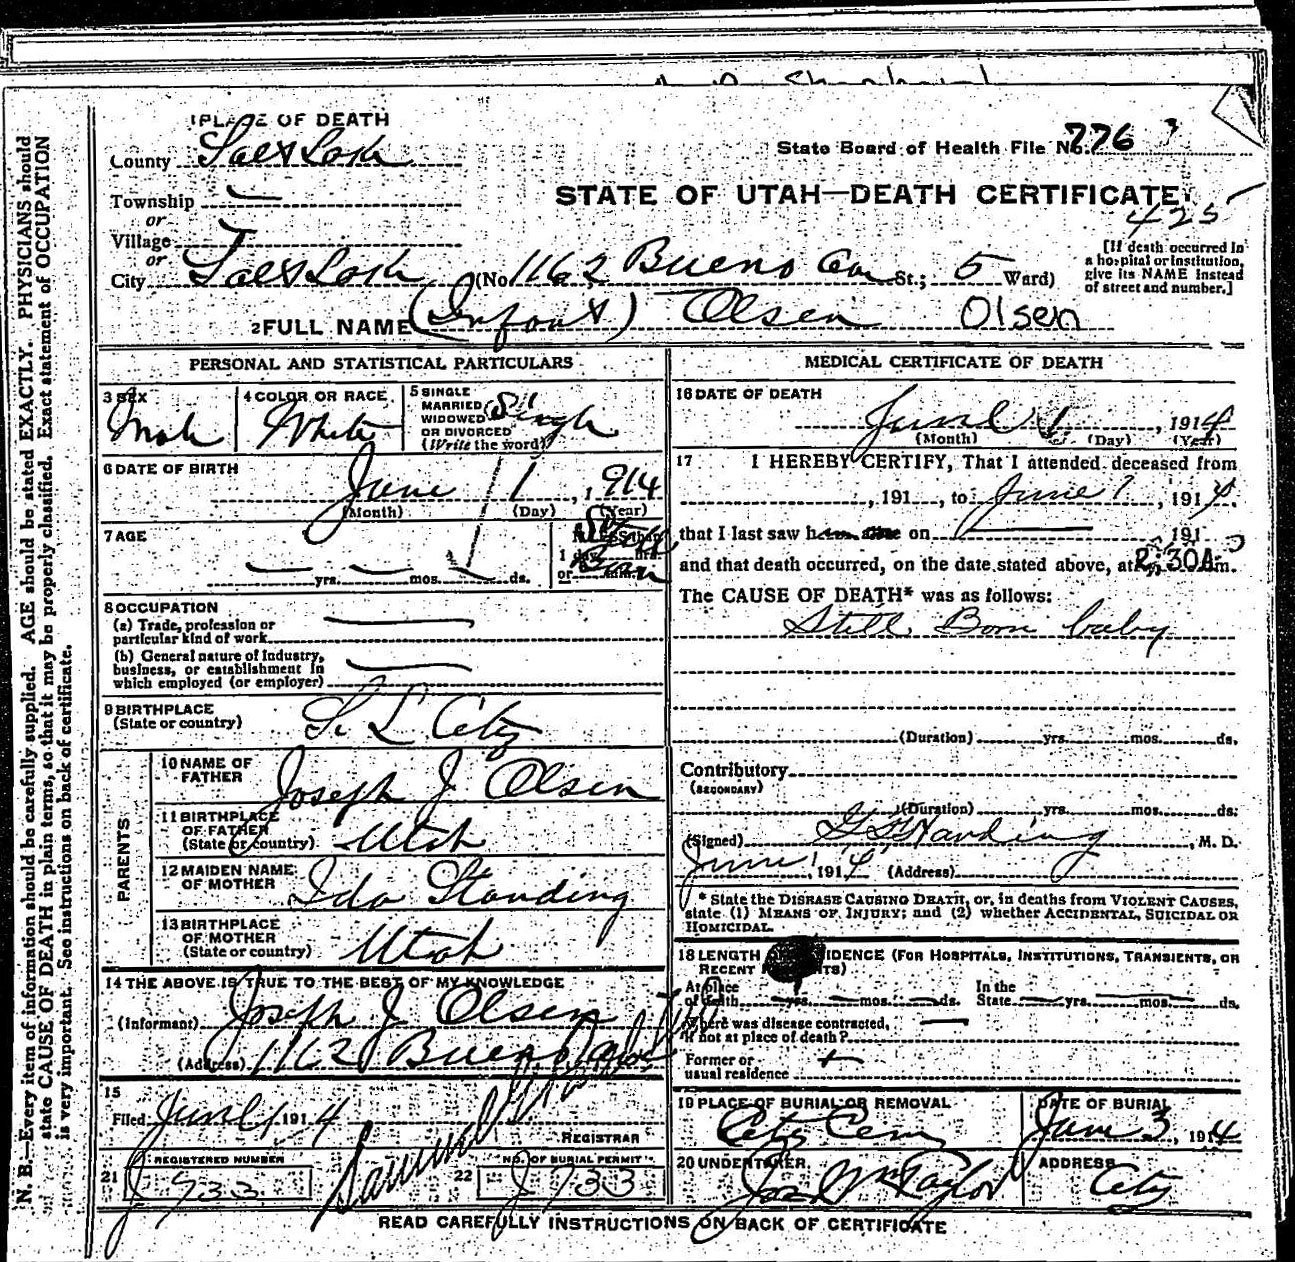 PLACE OF DEATH
County Salt Lake
State Board of Health File No. 776
STATE OF UTAH—DEATH CERTIFICATE
425
Township —
or
Village
or
City Salt Lake (No 1162 Bueno Ave St.; 5 Ward)
[If death occurred in
a hospital or institution,
give its NAME instead
of street and number.]
2 FULL NAME (Infant) Olsen Olsen
PERSONAL AND STATISTICAL PARTICULARS
3 SEX Male
4 COLOR OR RACE White
5 SINGLE
MARRIED
WIDOWED
OR DIVORCED
(Write the word) Single
6 DATE OF BIRTH
June 1, 1914
(Month) (Day) (Year)
7 AGE
— yrs. — mos. — ds.
If LESS than
1 day hrs.
or min.
Still Born
8 OCCUPATION
(a) Trade, profession or
particular kind of work —
(b) General nature of industry,
business, or establishment in
which employed (or employer) —
9 BIRTHPLACE
(State or country) S. L City
PARENTS
10 NAME OF
FATHER Joseph J Olsen
11 BIRTHPLACE
OF FATHER
(State or country) Utah
12 MAIDEN NAME
OF MOTHER Ida Standing
13 BIRTHPLACE
OF MOTHER
(State or country) Utah
14 THE ABOVE IS TRUE TO THE BEST OF MY KNOWLEDGE
(Informant) Joseph J Olsen
(Address) 1162 Bueno
15
Filed June 1 1914
Samuel
REGISTRAR
21 REGISTERED NUMBER
J 933
22 NO. OF BURIAL PERMIT
J 733
MEDICAL CERTIFICATE OF DEATH
16 DATE OF DEATH
June 1, 1914
(Month) (Day) (Year)
17 I HEREBY CERTIFY, That I attended deceased from
, 191 , to June 1, 1914.
that I last saw him alive on — 191
and that death occurred, on the date stated above, at 2:30A m.
The CAUSE OF DEATH* was as follows:
Still Born baby
(Duration) yrs. mos. ds.
Contributory
(SECONDARY)
(Duration) yrs. mos. ds.
(Signed) Harding, M. D.
June 1, 1914 (Address)
* State the DISEASE CAUSING DEATH, or, in deaths from VIOLENT CAUSES,
state (1) MEANS OF INJURY; and (2) whether ACCIDENTAL, SUICIDAL OR
HOMICIDAL.
18 LENGTH OF RESIDENCE (FOR HOSPITALS, INSTITUTIONS, TRANSIENTS, OR
RECENT RESIDENTS)
At place
of death — yrs. — mos. — ds. In the
State — yrs. — mos. — ds.
Where was disease contracted,
if not at place of death? —
Former or
usual residence
19 PLACE OF BURIAL OR REMOVAL
City Cemy
DATE OF BURIAL
June 3, 1914
20 UNDERTAKER
Jos Wm Taylor
ADDRESS
City
READ CAREFULLY INSTRUCTIONS ON BACK OF CERTIFICATE
N. B.—Every item of information should be carefully supplied. AGE should be stated EXACTLY. PHYSICIANS should
state CAUSE OF DEATH in plain terms, so that it may be properly classified. Exact statement of OCCUPATION
is very important. See instructions on back of certificate.